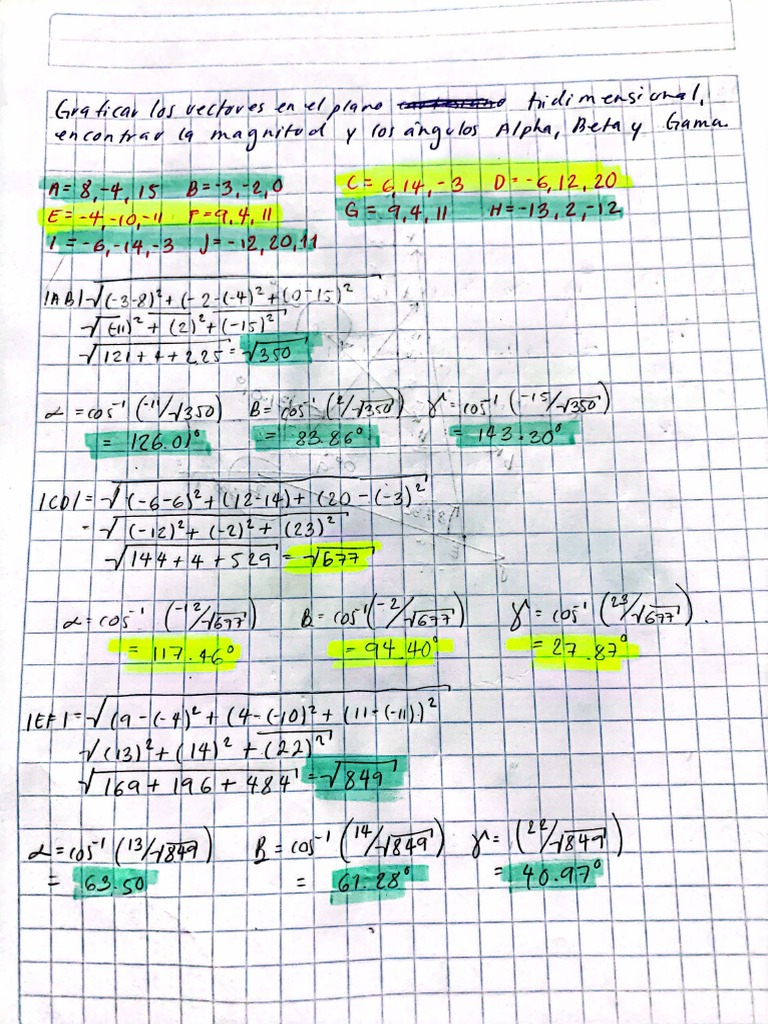 Graficar los vectores en el plano tridimensional,
encontrar la magnitud y los ángulos Alpha, Beta y Gama.
A= 8,-4,15 B=-3,-2,0 C= 6,14,-3 D=-6,12,20
E=-4,-10,-11 F=9,4,11 G= 9,4,11 H=-13,2,-12
I =-6,-14,-3 J=-12,20,11
|AB|=√(-3-8)²+(-2-(-4)²+(0-15)²
√(-11)²+(2)²+(-15)²
√121+4+225=√350
α=cos⁻¹(-11/√350) B=cos⁻¹(2/√350) γ=cos⁻¹(-15/√350)
= 126.01° = 83.86° = 143.30°
|CD|=√(-6-6)²+(12-14)+(20-(-3)²
-√(-12)²+(-2)²+(23)²
√144+4+529=√677
α=cos⁻¹(-12/√677) B=cos⁻¹(-2/√677) γ=cos⁻¹(23/√677).
= 117.46° = 94.40° = 27.87°
|EF|=√(9-(-4)²+(4-(-10)²+(11-(-11))²
√(13)²+(14)²+(22)²
√169+196+484=√849
α=cos⁻¹(13/√849) B=cos⁻¹(14/√849) γ=(22/√849)
= 63.50 = 61.28° = 40.97°